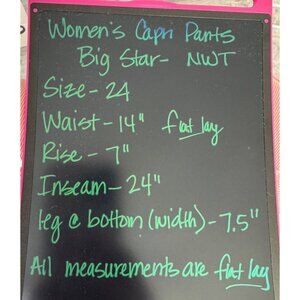 Women's Capri Pants
Big Star- NWT
Size- 24
Waist- 14" flat lay
Rise- 7"
Inseam- 24"
leg @ bottom (width)- 7.5"
All measurements are flat lay